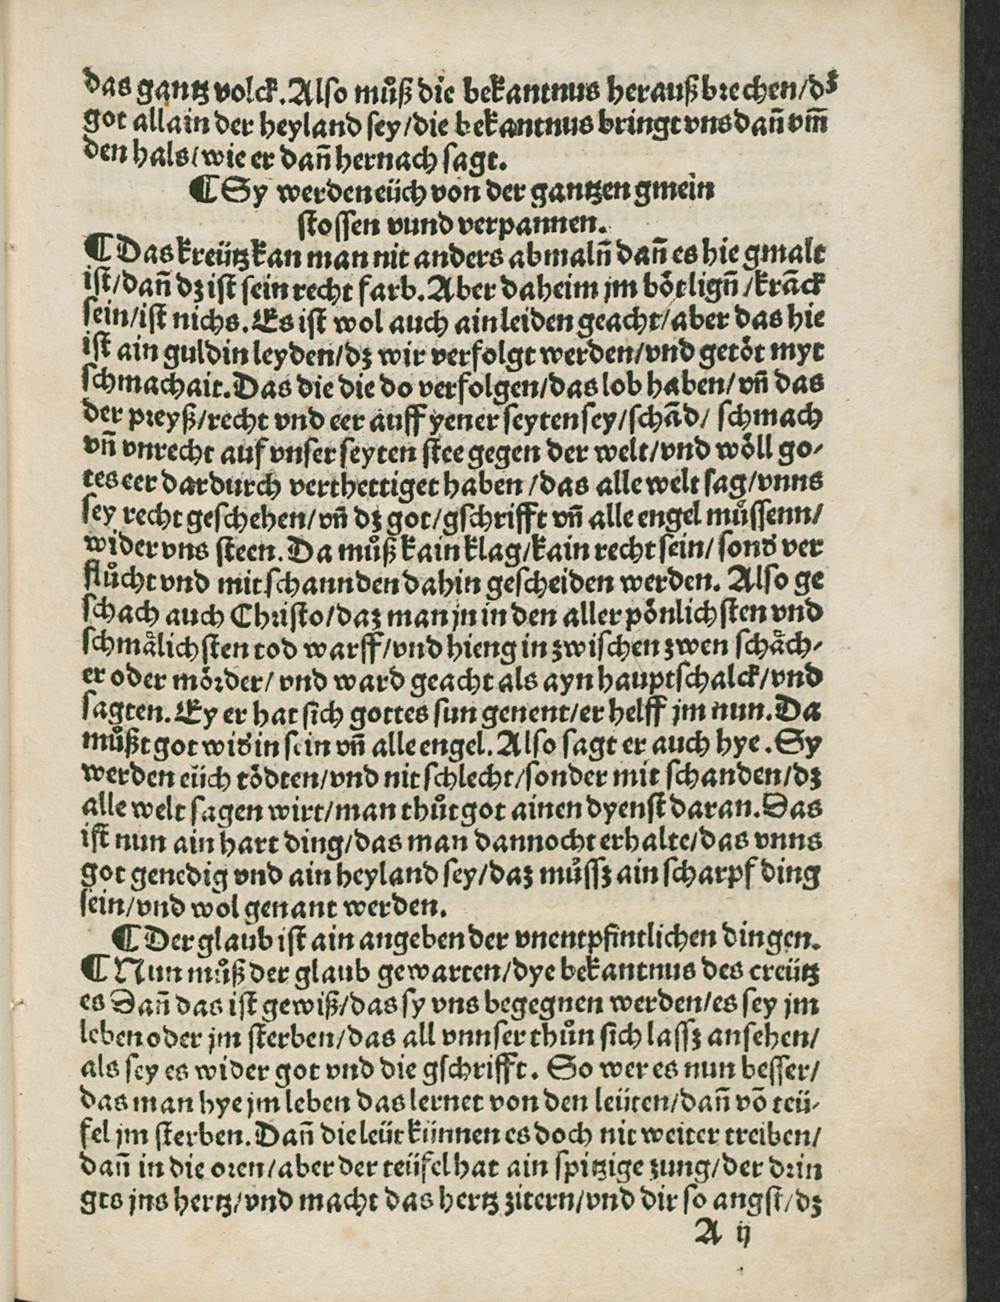 das gantz volck. Also můß die bekantnus heraußbrechen/dz
got allain der heyland sey/die bekantnus bringt vns dañ vm̃
den hals/wie er dañ hernach sagt.
¶ Sy werden eüch von der gantzen gmein
stossen vund verpannen.
¶ Das kreütz kan man nit anders abmaln̄ dañ es hie gmalt
ist/dañ dz ist sein recht farb. Aber daheim jm bötlign̄/krãck
sein/ist nichs. Es ist wol auch ain leiden geacht/aber das hie
ist ain guldin leyden/dz wir verfolgt werden/vnd getöt myt
schmachait. Das die die do verfolgen/das lob haben/vñ das
der preyß/recht vnd eer auff yener seyten sey/schãd/ schmach
vñ vnrecht auf vnser seyten stee gegen der welt/vnd wöll go-
tes eer dardurch verthettiget haben/das alle welt sag/vnns
sey recht geschehen/vñ dz got/gschrifft vñ alle engel müssenn/
wider vns steen. Da můß kain klag/kain recht sein/ sond ver
flůcht vnd mit schannden dahin gescheiden werden. Also ge
schach auch Christo/daz man jn in den aller pönlichsten vnd
schmälichsten tod warff/vnd hieng in zwischen zwen schäch-
er oder mörder/ vnd ward geacht als ayn hauptschalck/vnd
sagten. Ey er hat sich gottes sun genent/er helff jm nun. Da
můßt got wid in sein vñ alle engel. Also sagt er auch hye. Sy
werden eüch tödten/vnd nit schlecht/sonder mit schanden/dz
alle welt sagen wirt/man thůt got ainen dyenst daran. Das
ist nun ain hart ding/das man dannocht erhalte/das vnns
got genedig vnd ain heyland sey/daz můssz ain scharpf ding
sein/vnd wol genant werden.
¶ Der glaub ist ain angeben der vnentpfintlichen dingen.
¶ Nun můß der glaub gewarten/dye bekantnus des creütz
es Dañ das ist gewiß/das sy vns begegnen werden/es sey jm
leben oder jm sterben/das all vnnser thůn sich lassz ansehen/
als sey es wider got vnd die gschrifft. So wer es nun besser/
das man hye jm leben das lernet von den leüten/dañ võ teü-
fel jm sterben. Dañ die leüt künnen es doch nit weiter treiben/
dañ in die oren/aber der teüfel hat ain spitzige zung/der drin
gts jns hertz/vnd macht das hertz zitern/vnd dir so angst/dz
A ij